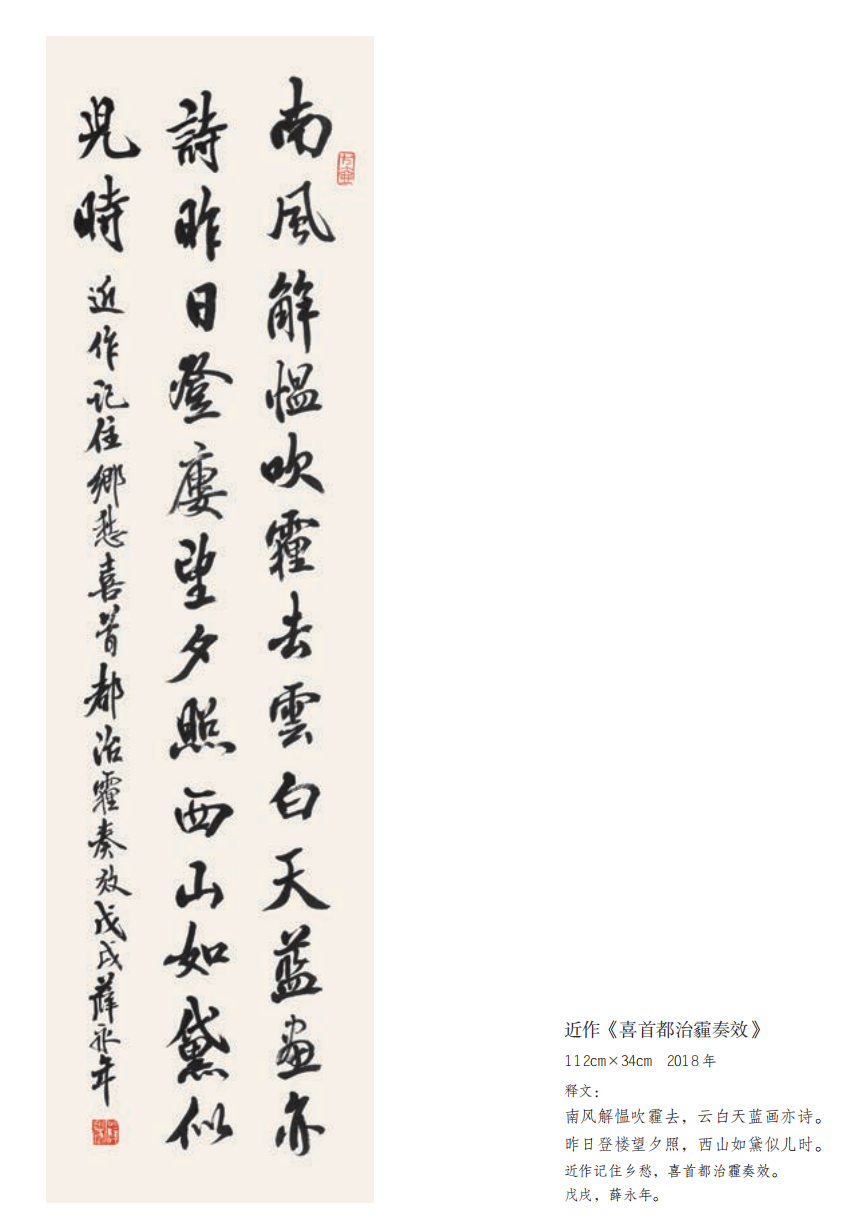 南風解愠吹霾去雲白天蓝画亦
詩昨日登廔望夕照西山如黛似
児時
近作记住鄉愁喜首都治霾奏效戊戌薛永年
近作《喜首都治霾奏效》
112cm×34cm 2018年
释文：
南风解愠吹霾去，云白天蓝画亦诗。
昨日登楼望夕照，西山如黛似儿时。
近作记住乡愁，喜首都治霾奏效。
戊戌，薛永年。